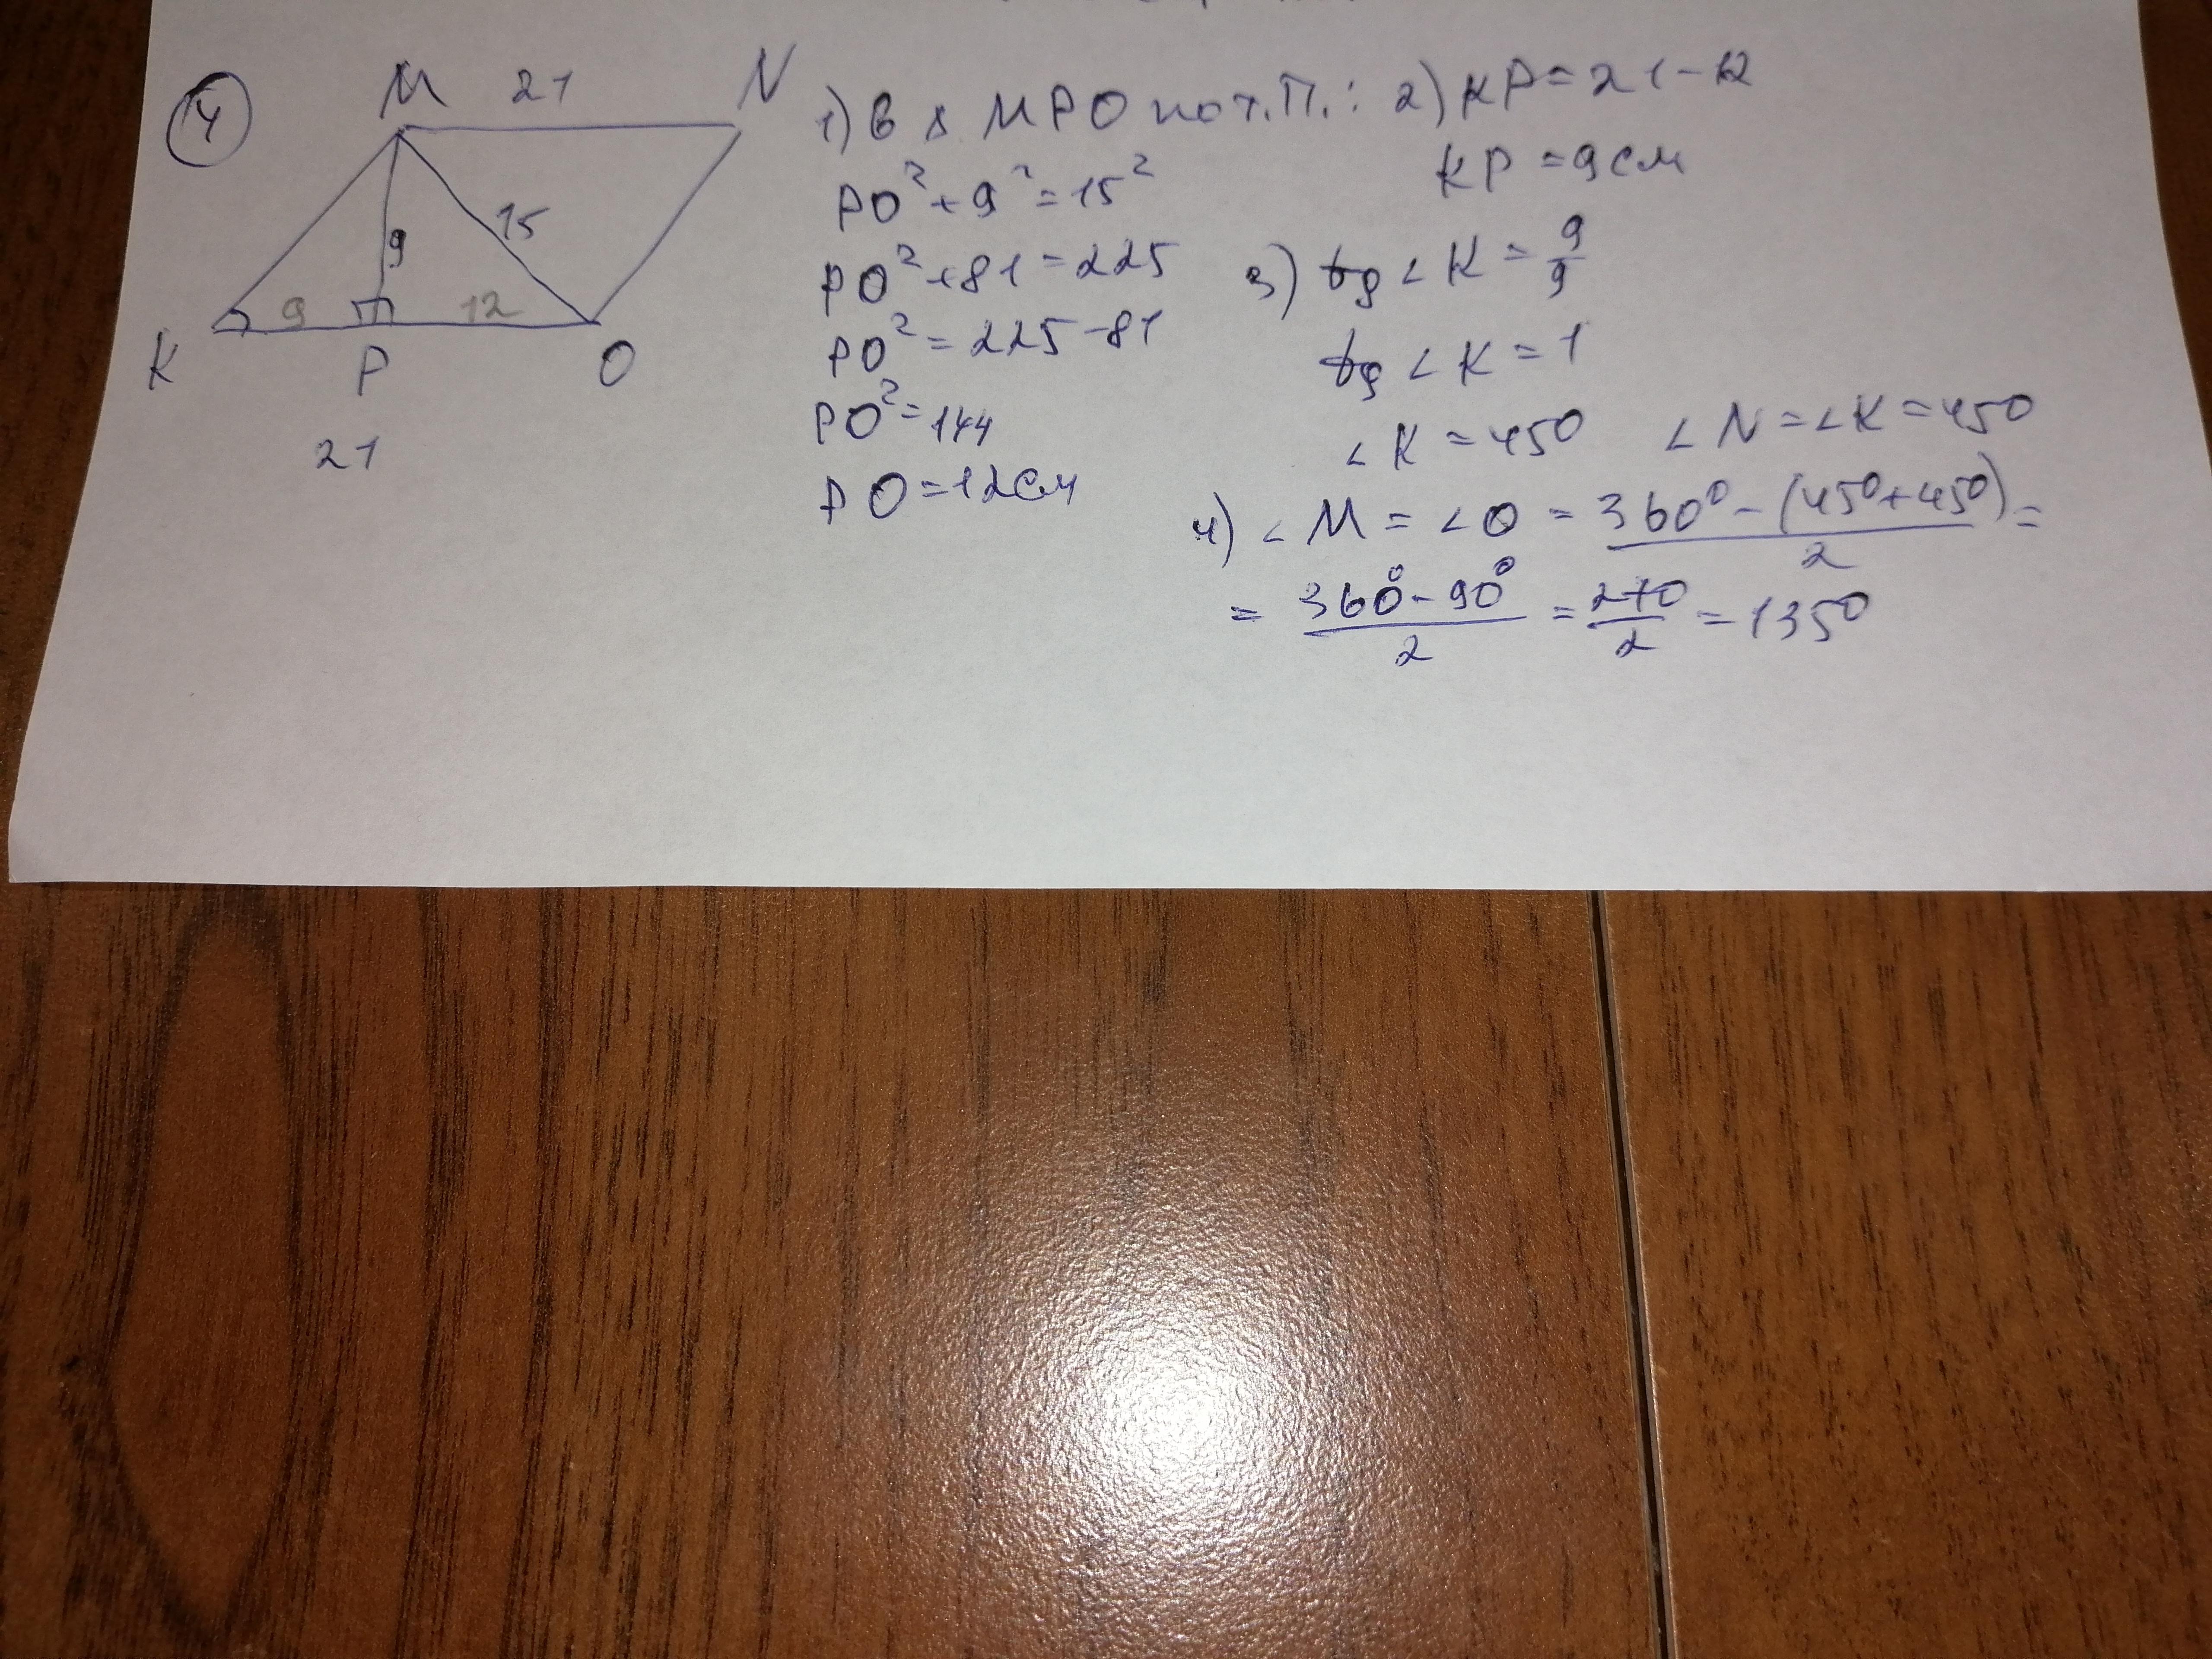 4
M 21 N
15
9
9 12
K P O
21
1) В △ MPO по т.П.:
PO² + 9² = 15²
PO² + 81 = 225
PO² = 225 - 81
PO² = 144
PO = 12см
2) KP = 21 - 12
KP = 9см
3) tg ∠ K = 9/9
tg ∠ K = 1
∠ K = 45° ∠ N = ∠ K = 45°
4) ∠ M = ∠ O = (360° - (45° + 45°))/2 =
= (360° - 90°)/2 = 270/2 = 135°